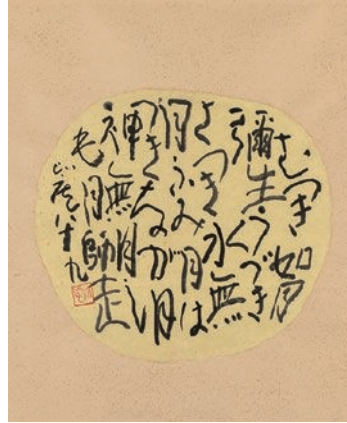 むつき如月
彌生うづき
さつき水無
月ふみ月は
つきなが月
神無月し
毛月師走
八十九